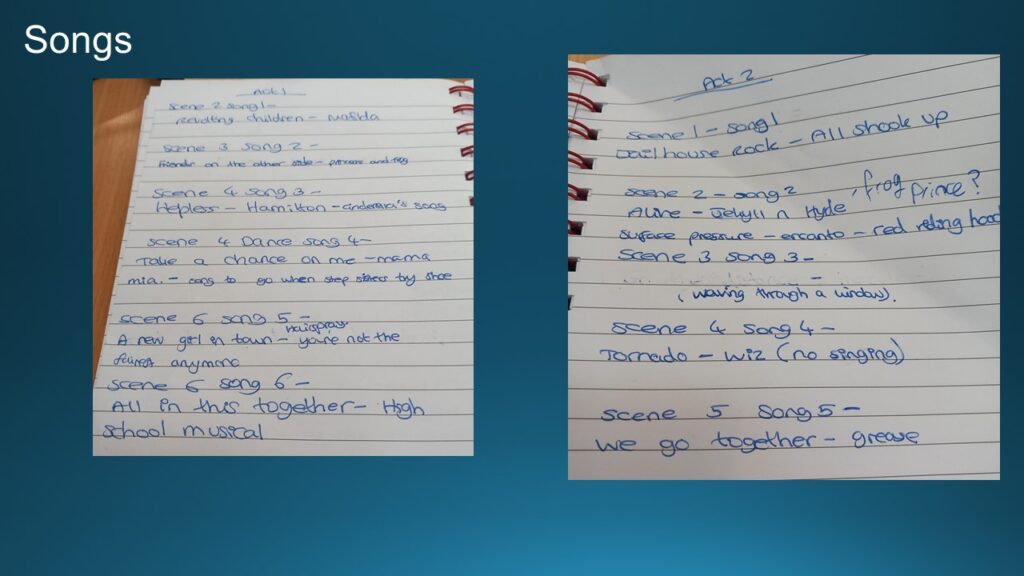 Songs
Act 1
Scene 2 song 1 -
Revolting children - Matilda
Scene 3 song 2 -
Friends on the other side - princess and frog
Scene 4 song 3 -
Hepless - Hamilton - cinderella's song
Scene 4 Dance song 4 -
Take a chance on me - mama
mia. - song to go when step sisters by shoe
Scene 6 song 5 -
Hairspray
A new girl in town - you're not the
fairest anymore
Scene 6 song 6 -
All in this together - High
School musical
Act 2
Scene 1 - song 1
Jailhouse Rock - All shook up
Scene 2 - song 2
Alive - Jekyll n Hyde, frog prince?
surface pressure - encanto - red riding hood
Scene 3 song 3 -
(waving through a window).
Scene 4 song 4 -
Tornado - Wiz (no singing)
Scene 5 song 5 -
We go together - grease